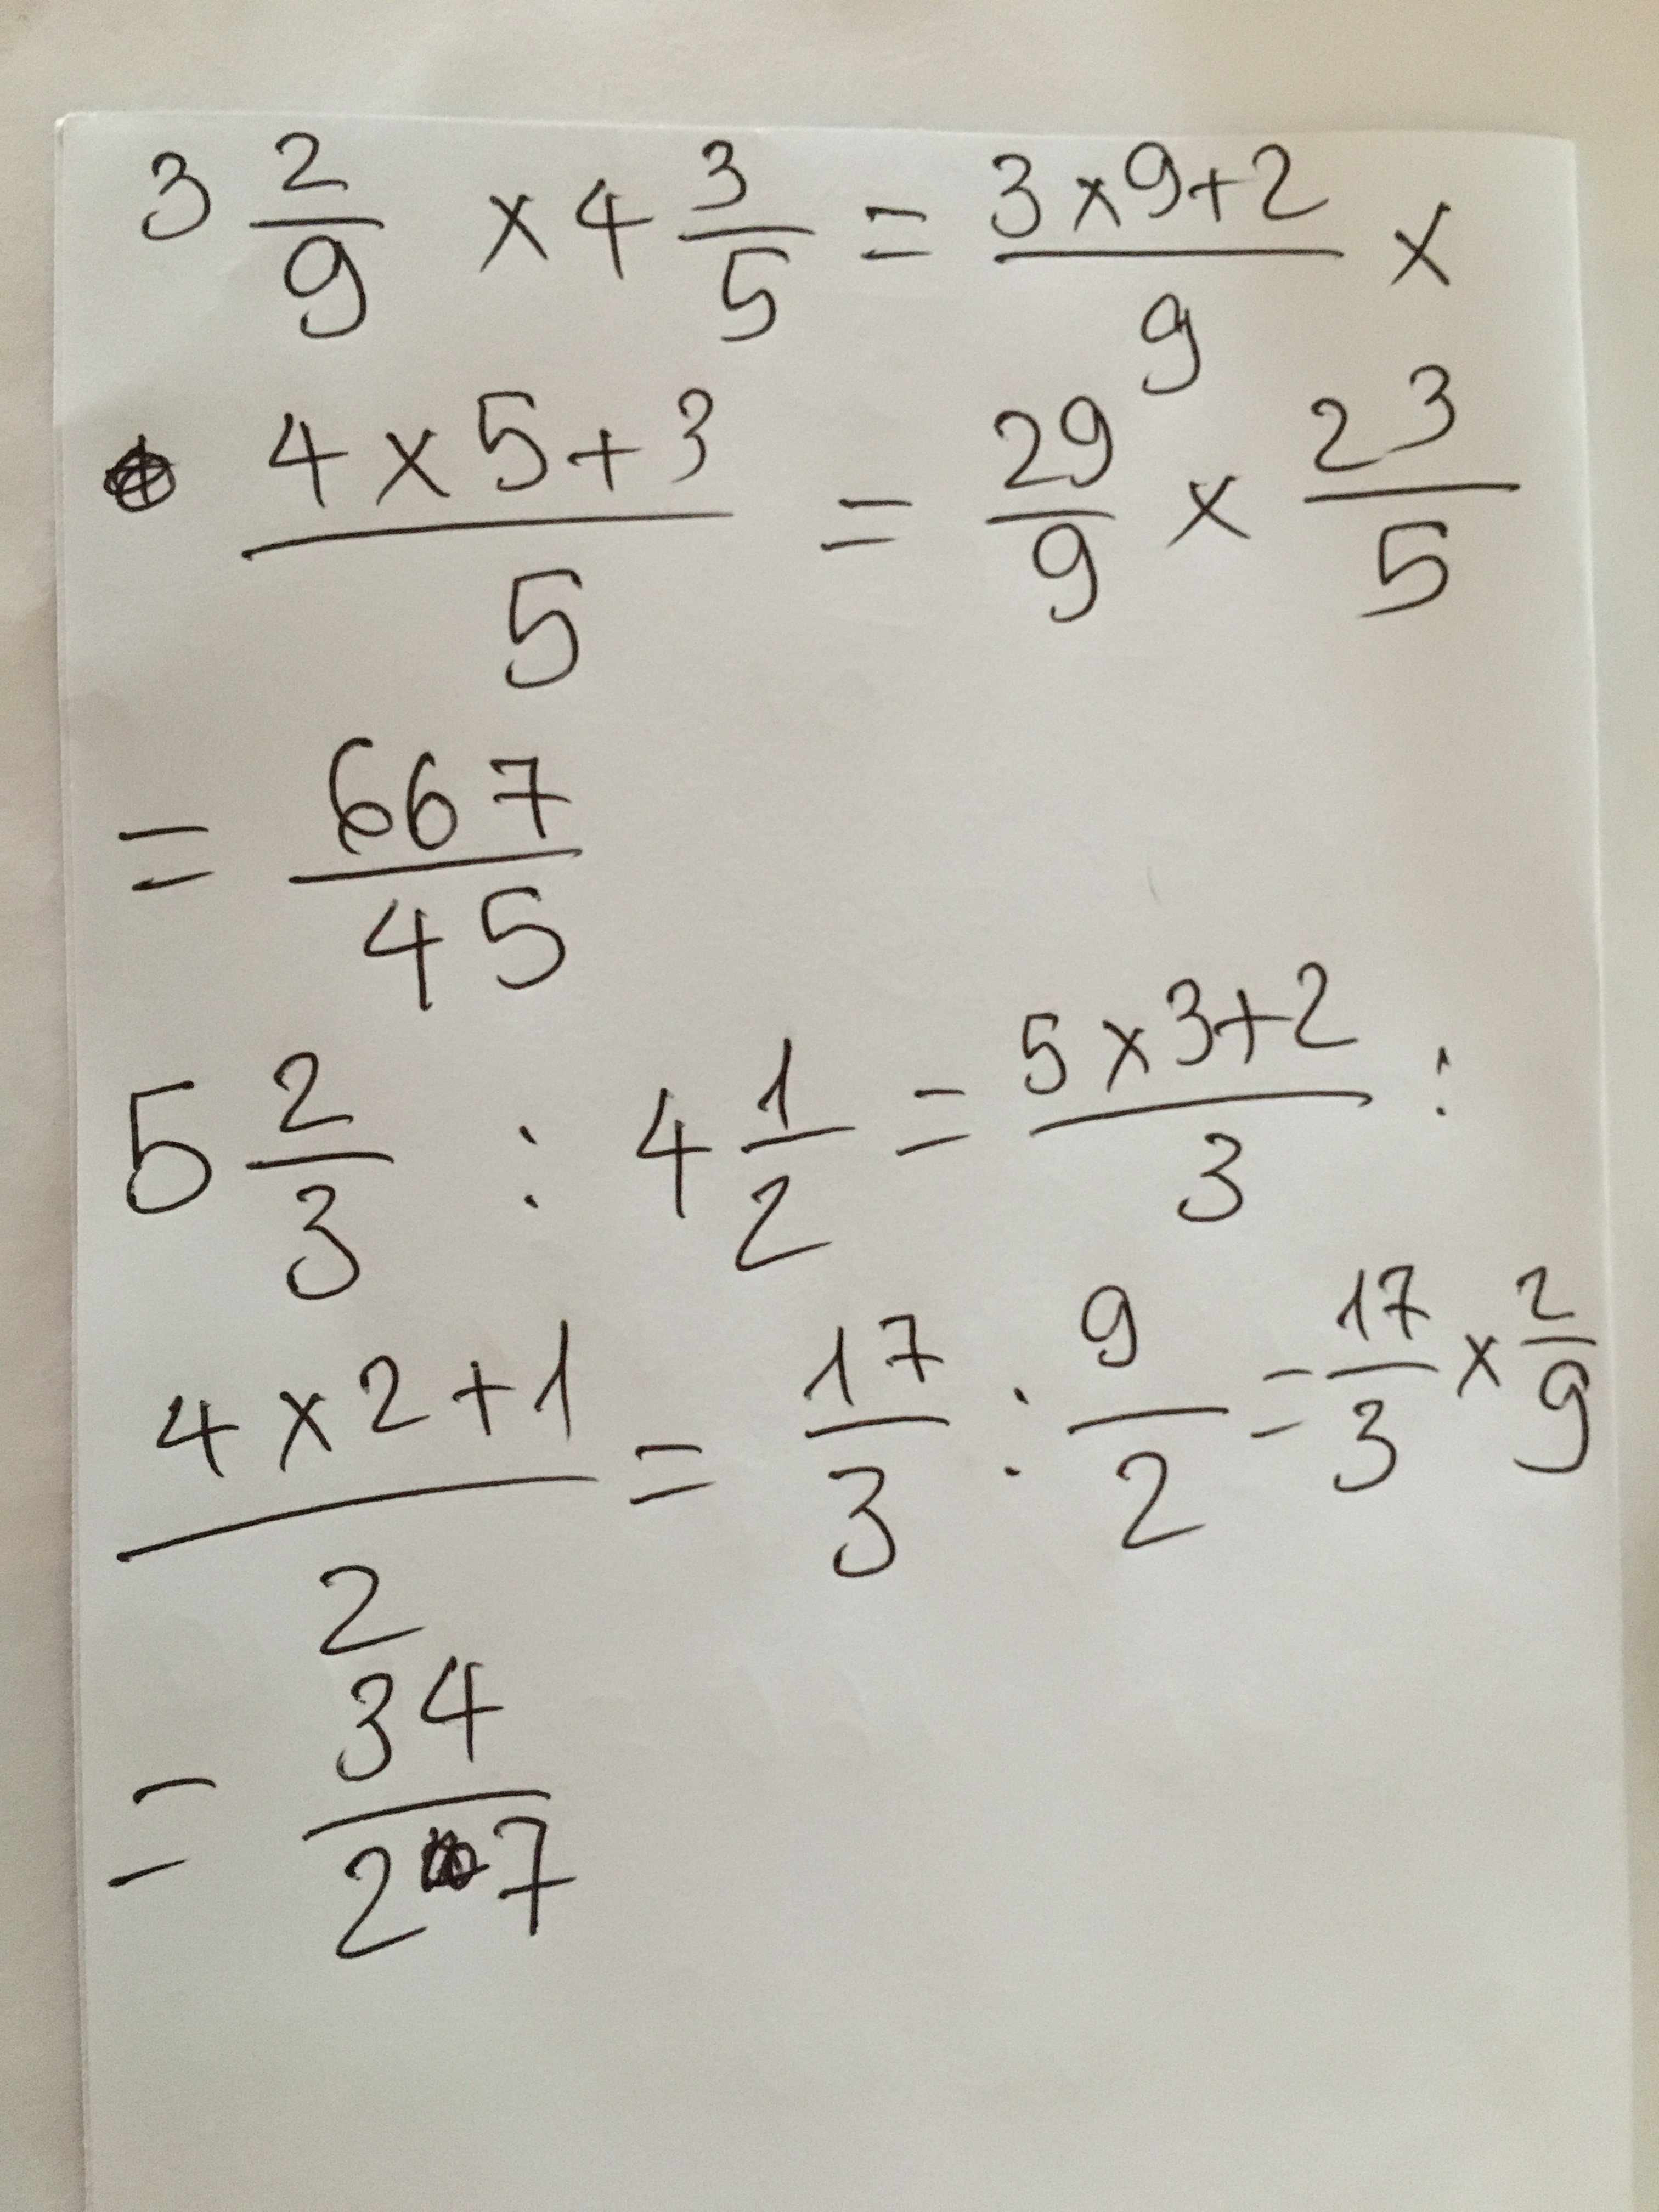 3 2/9 × 4 3/5 = (3 × 9 + 2)/9 ×
(4 × 5 + 3)/5 = 29/9 × 23/5
= 667/45
5 2/3 : 4 1/2 = (5 × 3 + 2)/3 :
(4 × 2 + 1)/2 = 17/3 : 9/2 = 17/3 × 2/9
= 34/27